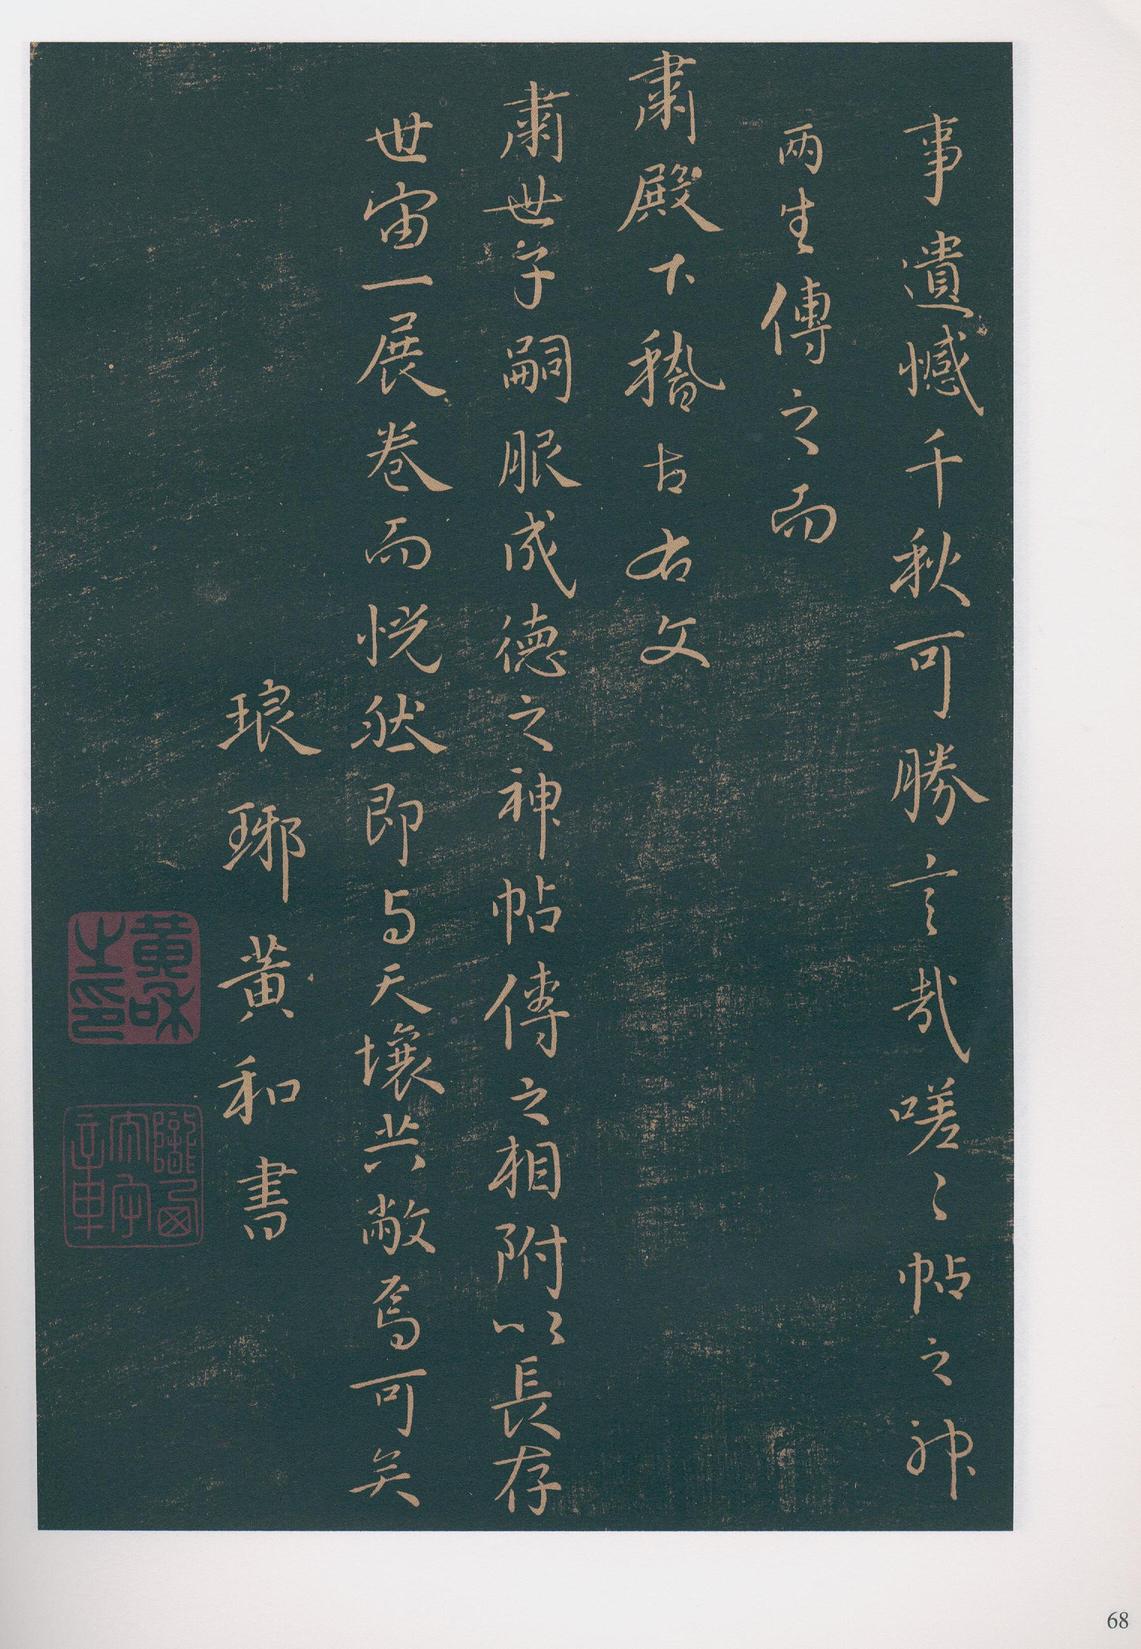 事遺憾千秋可勝言哉嗟〻帖之神
兩生傳之而
肅殿下稽古右文
肅世子嗣服成德之神帖傳之相附以長存
世宙一展卷而恍然即与天壤共敝焉可矣
琅琊黃和書
黃和之印
68